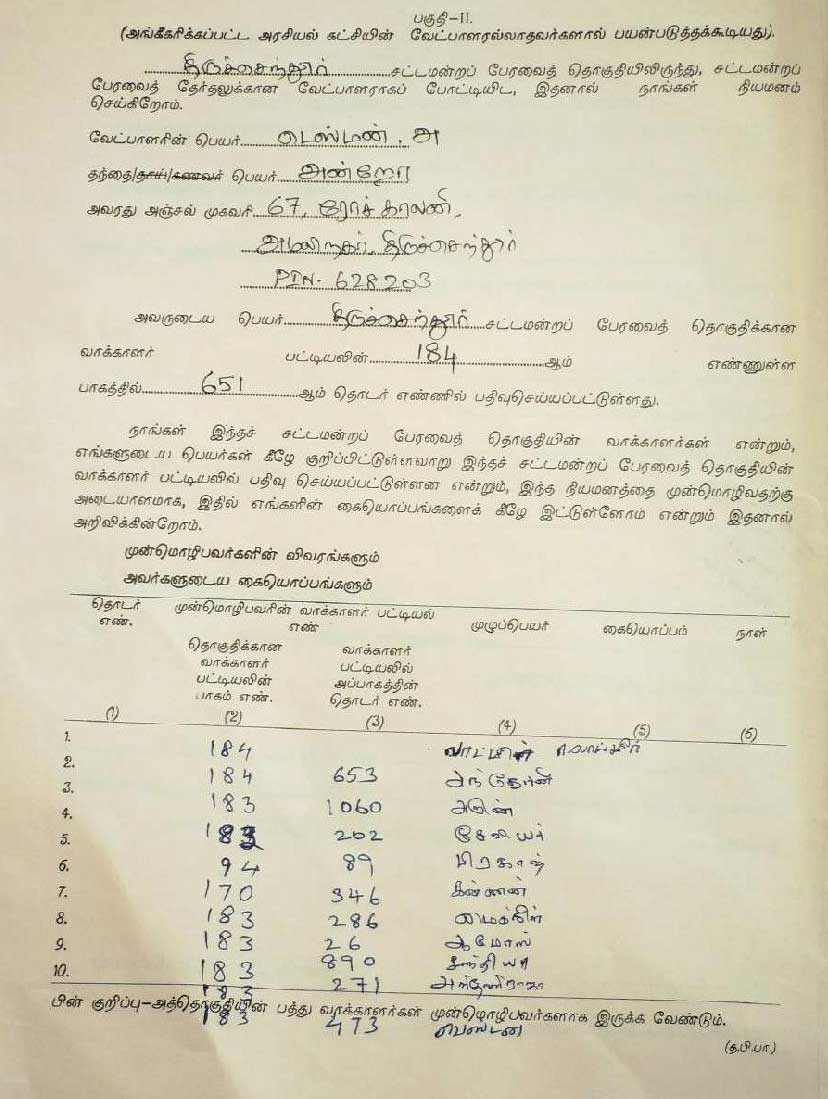 பகுதி—II.
(அங்கீகரிக்கப்பட்ட அரசியல் கட்சியின் வேட்பாளரல்லாதவர்களால் பயன்படுத்தக்கூடியது).
திருச்செந்தூர் சட்டமன்றப் பேரவைத் தொகுதியிலிருந்து, சட்டமன்றப்
பேரவைத் தேர்தலுக்கான வேட்பாளராகப் போட்டியிட, இதனால் நாங்கள் நியமனம்
செய்கிறோம்.
வேட்பாளரின் பெயர் டெஸ்மண். அ
தந்தை/தாய்/கணவர் பெயர் அன்றோ
அவரது அஞ்சல் முகவரி 67, ரோச் காலனி,
அமலிநகர், திருச்செந்தூர்
PIN- 628203
அவருடைய பெயர் திருச்செந்தூர் சட்டமன்றப் பேரவைத் தொகுதிக்கான
வாக்காளர் பட்டியலின் 184 ஆம் எண்ணுள்ள
பாகத்தில் 651 ஆம் தொடர் எண்ணில் பதிவுசெய்யப்பட்டுள்ளது.
நாங்கள் இந்தச் சட்டமன்றப் பேரவைத் தொகுதியின் வாக்காளர்கள் என்றும்,
எங்களுடைய பெயர்கள் கீழே குறிப்பிட்டுள்ளவாறு இந்தச் சட்டமன்றப் பேரவைத் தொகுதியின்
வாக்காளர் பட்டியலில் பதிவு செய்யப்பட்டுள்ளன என்றும், இந்த நியமனத்தை முன்மொழிவதற்கு
அடையாளமாக, இதில் எங்களின் கையொப்பங்களைக் கீழே இட்டுள்ளோம் என்றும் இதனால்
அறிவிக்கின்றோம்.
முன்மொழிபவர்களின் விவரங்களும்
அவர்களுடைய கையொப்பங்களும்
தொடர் முன்மொழிபவரின் வாக்காளர் பட்டியல் முழுப்பெயர் கையொப்பம் நாள்
எண். எண்
தொகுதிக்கான வாக்காளர்
வாக்காளர் பட்டியலில்
பட்டியலின் அப்பாகத்தின்
பாகம் எண். தொடர் எண்.
(1) (2) (3) (4) (5) (6)
1. 184
2. 184 653 அந்தோனி
3. 183 1060
4. 183 202
5. 94 89 பிரகாஷ்
6. 170 346
7. 183 286 மைக்கிள்
8. 183 26 ஆமோஸ்
9. 183 890
10. 183 271
பின் குறிப்பு—அத்தொகுதியின் பத்து வாக்காளர்கள் முன்மொழிபவர்களாக இருக்க வேண்டும்.
183 473
(த.பி.பா)